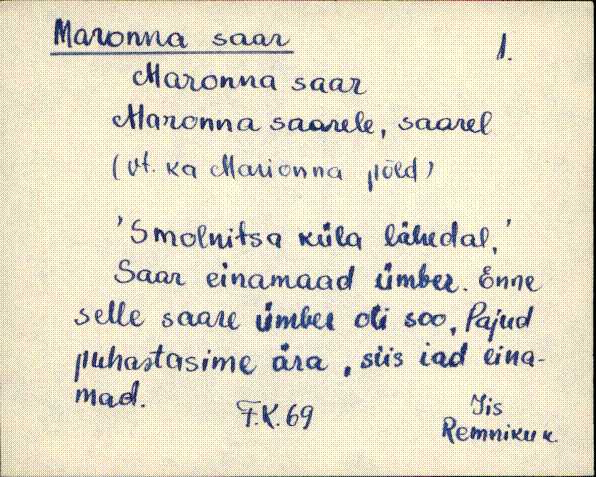 Maronna saar
1.
Maronna saar
Maronna saarele, saarel
(vt. ka Marionna põld)
'Smolnitsa küla lähedal,'
Saar einamaad ümber. Enne
selle saare ümber oli soo, Pajud
puhastasime ära, siis iad eina-
mad.
F.K. 69
Iis
Remniku k.